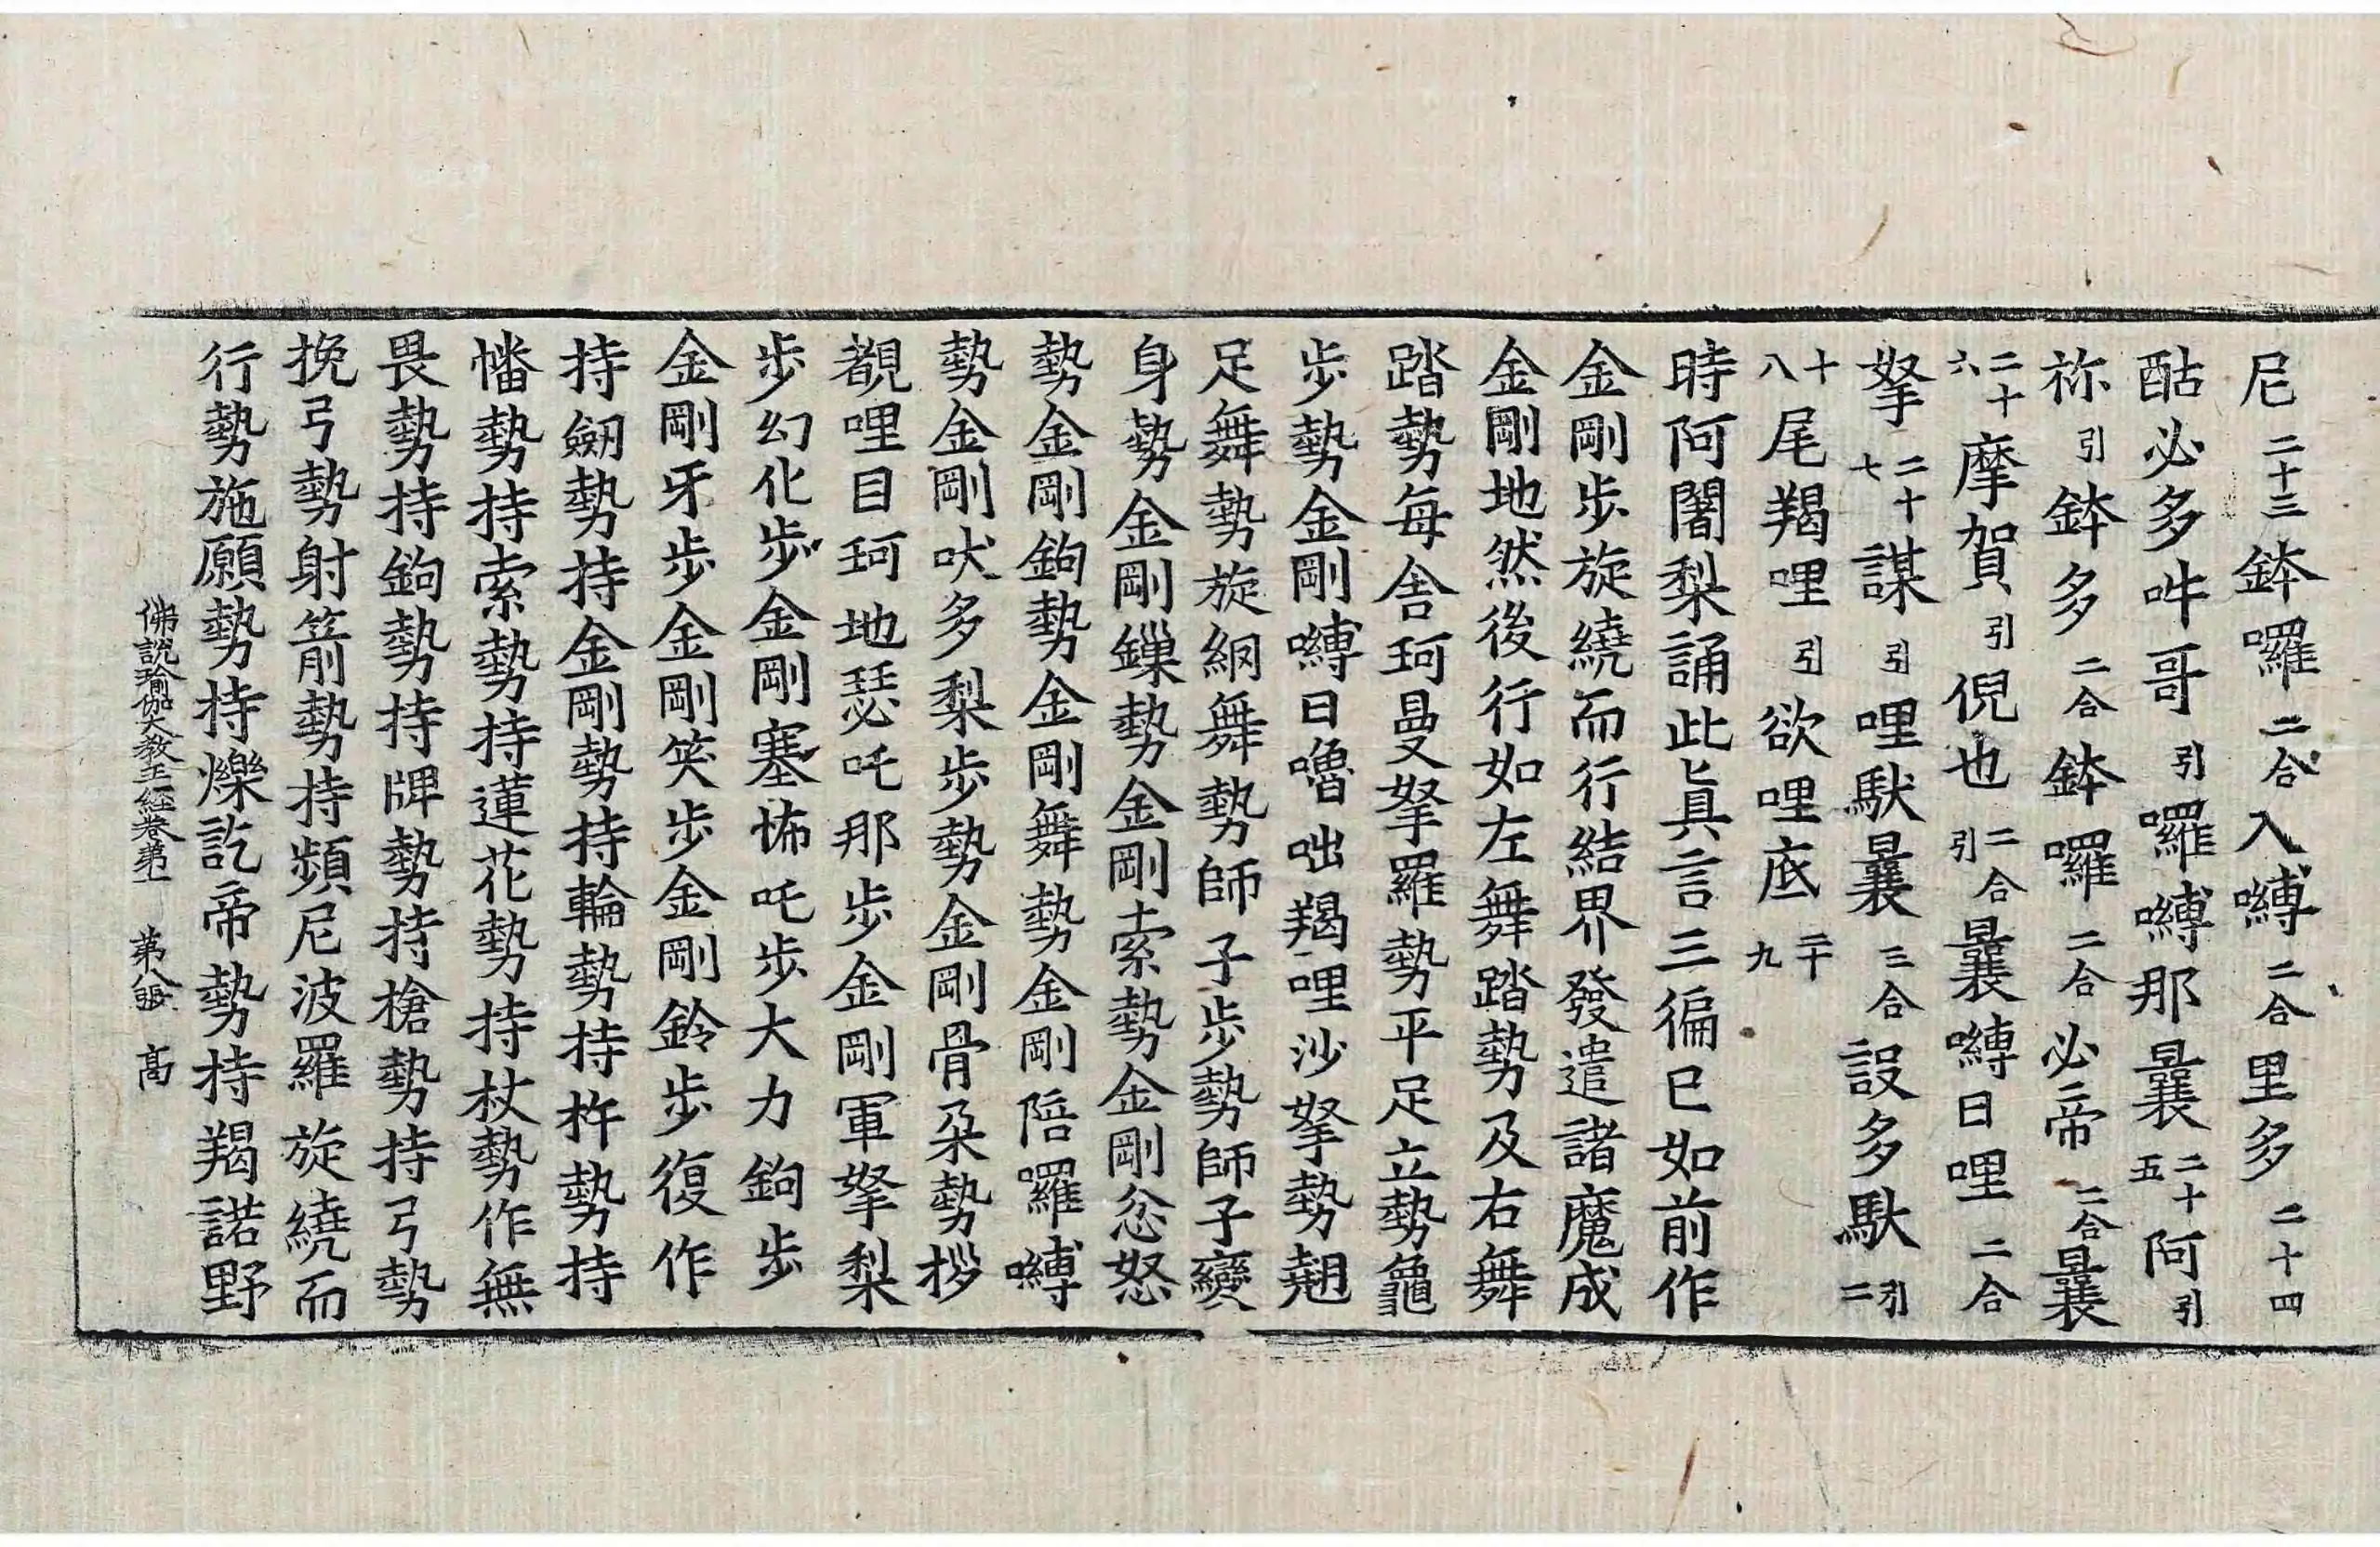 尼二十三鉢囉二合入嚩二合里多二十四
酤必多吽哥引囉嚩那曩二十五阿引
祢引鉢多二合鉢囉二合必帝二合曩
二十六摩賀引倪也二合引曩嚩日哩二合
拏二十七謀引哩馱曩三合設多馱引二
十八尾羯哩引欲哩底二十九
時阿闍梨誦此眞言三徧已如前作
金剛步旋繞而行結界發遣諸魔成
金剛地然後行如左舞踏勢及右舞
踏勢每舍珂曼拏羅勢平足立勢龜
步勢金剛嚩日嚕咄羯哩沙拏勢翹
足舞勢旋絅舞勢師子步勢師子變
身勢金剛鏁勢金剛索勢金剛忿怒
勢金剛鉤勢金剛舞勢金剛陪囉嚩
勢金剛吠多梨步勢金剛骨朶勢拶
覩哩目珂地瑟吒那步金剛軍拏梨
步幻化步金剛塞怖吒步大力鉤步
金剛牙步金剛笑步金剛鈴步復作
持劒勢持金剛勢持輪勢持杵勢持
幡勢持索勢持蓮花勢持杖勢作無
畏勢持鉤勢持牌勢持槍勢持弓勢
挽弓勢射箭勢持頻尼波羅旋繞而
行勢施願勢持爍訖帝勢持羯諾野
佛說瑜伽大教王經卷第一 第八張 高